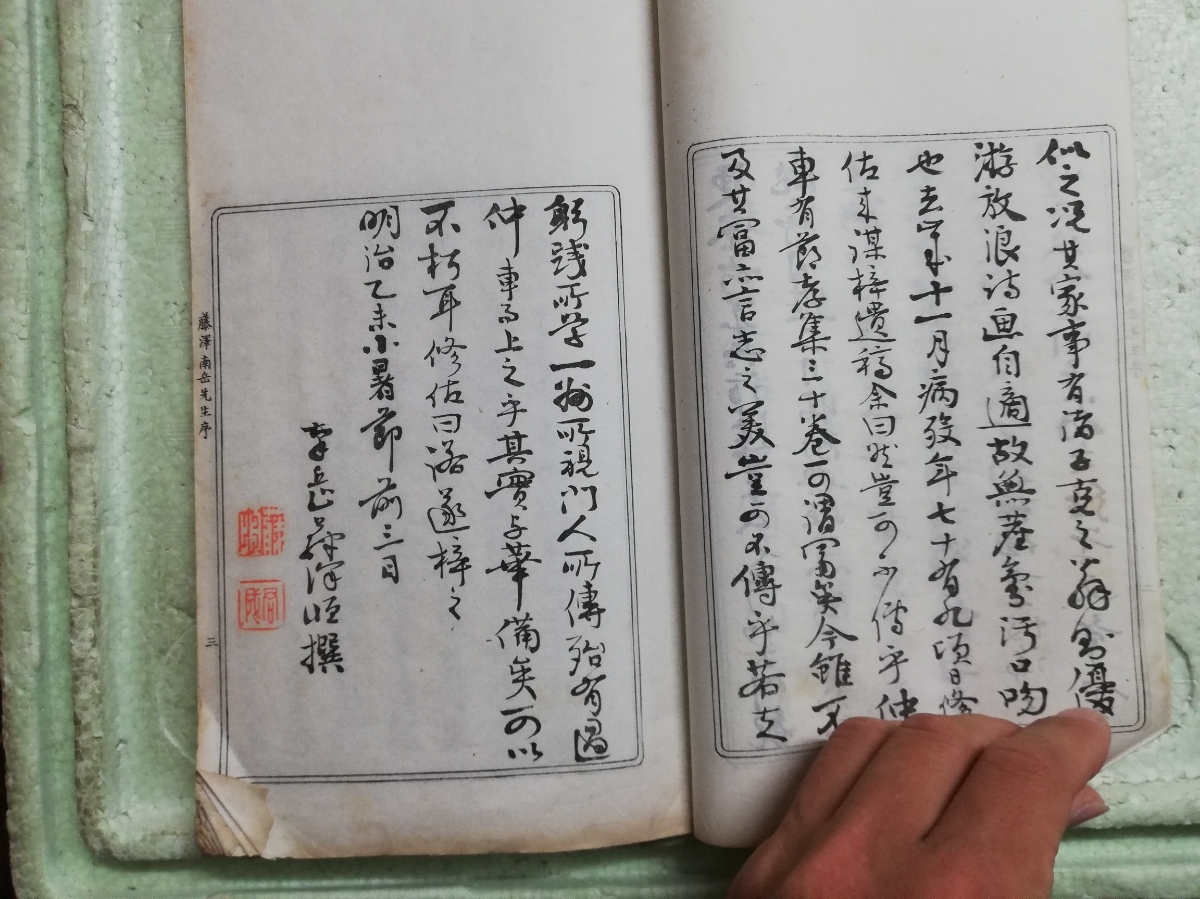 似之况其家事有諸子克之
游放浪詩画自適故無塵氣污口吻
也去年十一月病歿年七十有九頃日修
佑来謀梓遺稿余曰然豈可不傳乎仲
車有節孝集三十卷可謂富矣今雖不
及其富而言志之美豈可不傳乎若夫
躬践所学一鄉所視門人所傳殆有過
仲車而上之乎其實与華備矣可以
不朽耳修佑曰諾遂梓之
明治乙未小暑節前三日
南岳藤澤恒撰
藤澤南岳先生序
三